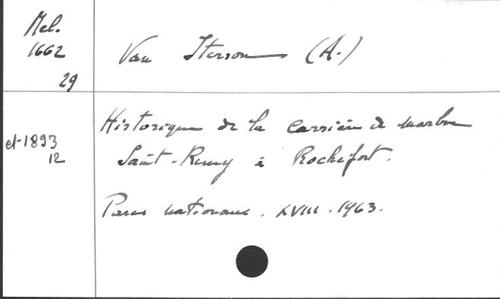 Mel.
1662
29
Van Iterson (A.)
et 1893
12
Historique de la carrière de marbre
Saint-Remy à Rochefort.
Parcs nationaux. XVIII. 1963.